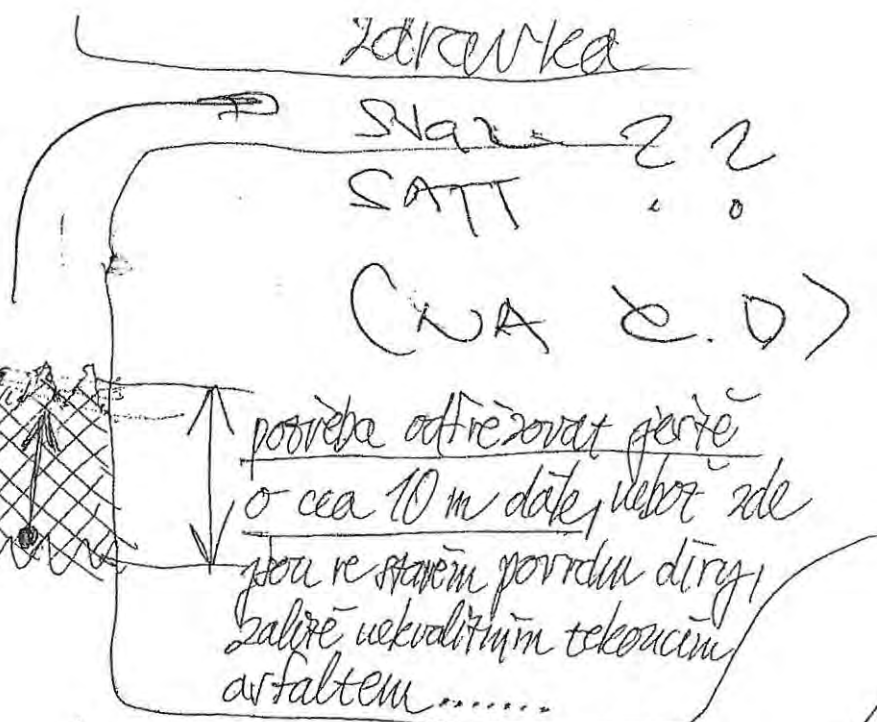 zdravka
SATT
(NA č. D)
potřeba odfrézovat ještě
o cca 10 m dále, neboť zde
jsou ve starém povrchu díry,
zalité nekvalitním tekoucím
asfaltem.......